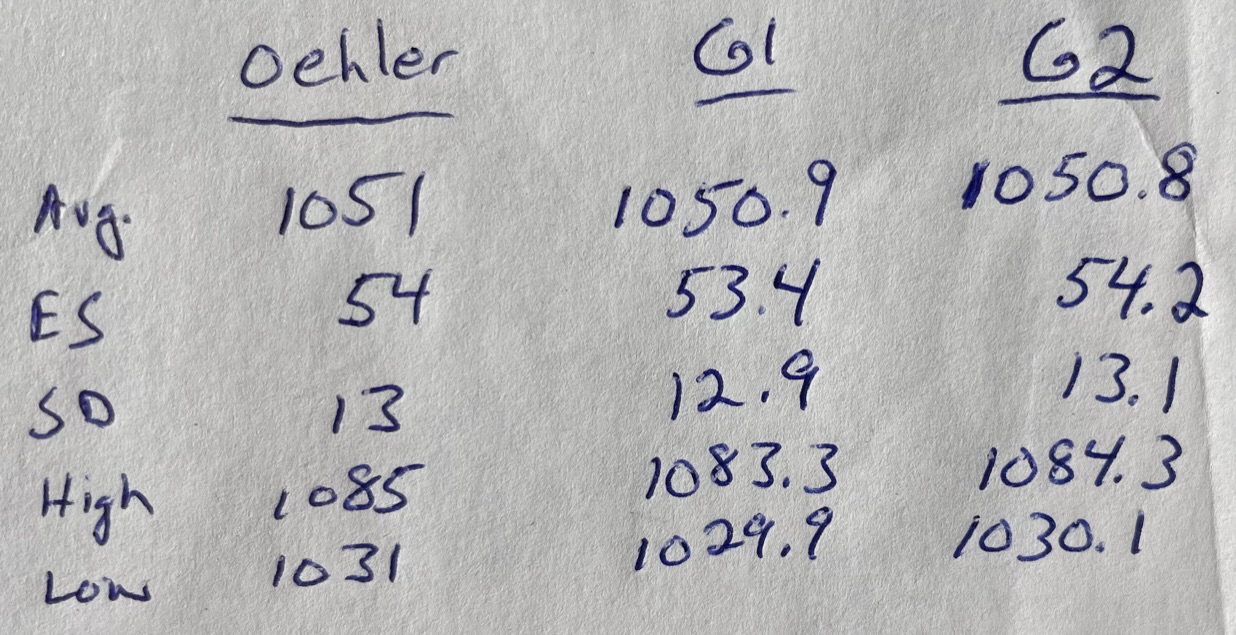 Oehler G1 G2
Avg. 1051 1050.9 1050.8
ES 54 53.4 54.2
SD 13 12.9 13.1
High 1085 1083.3 1084.3
Low 1031 1029.9 1030.1